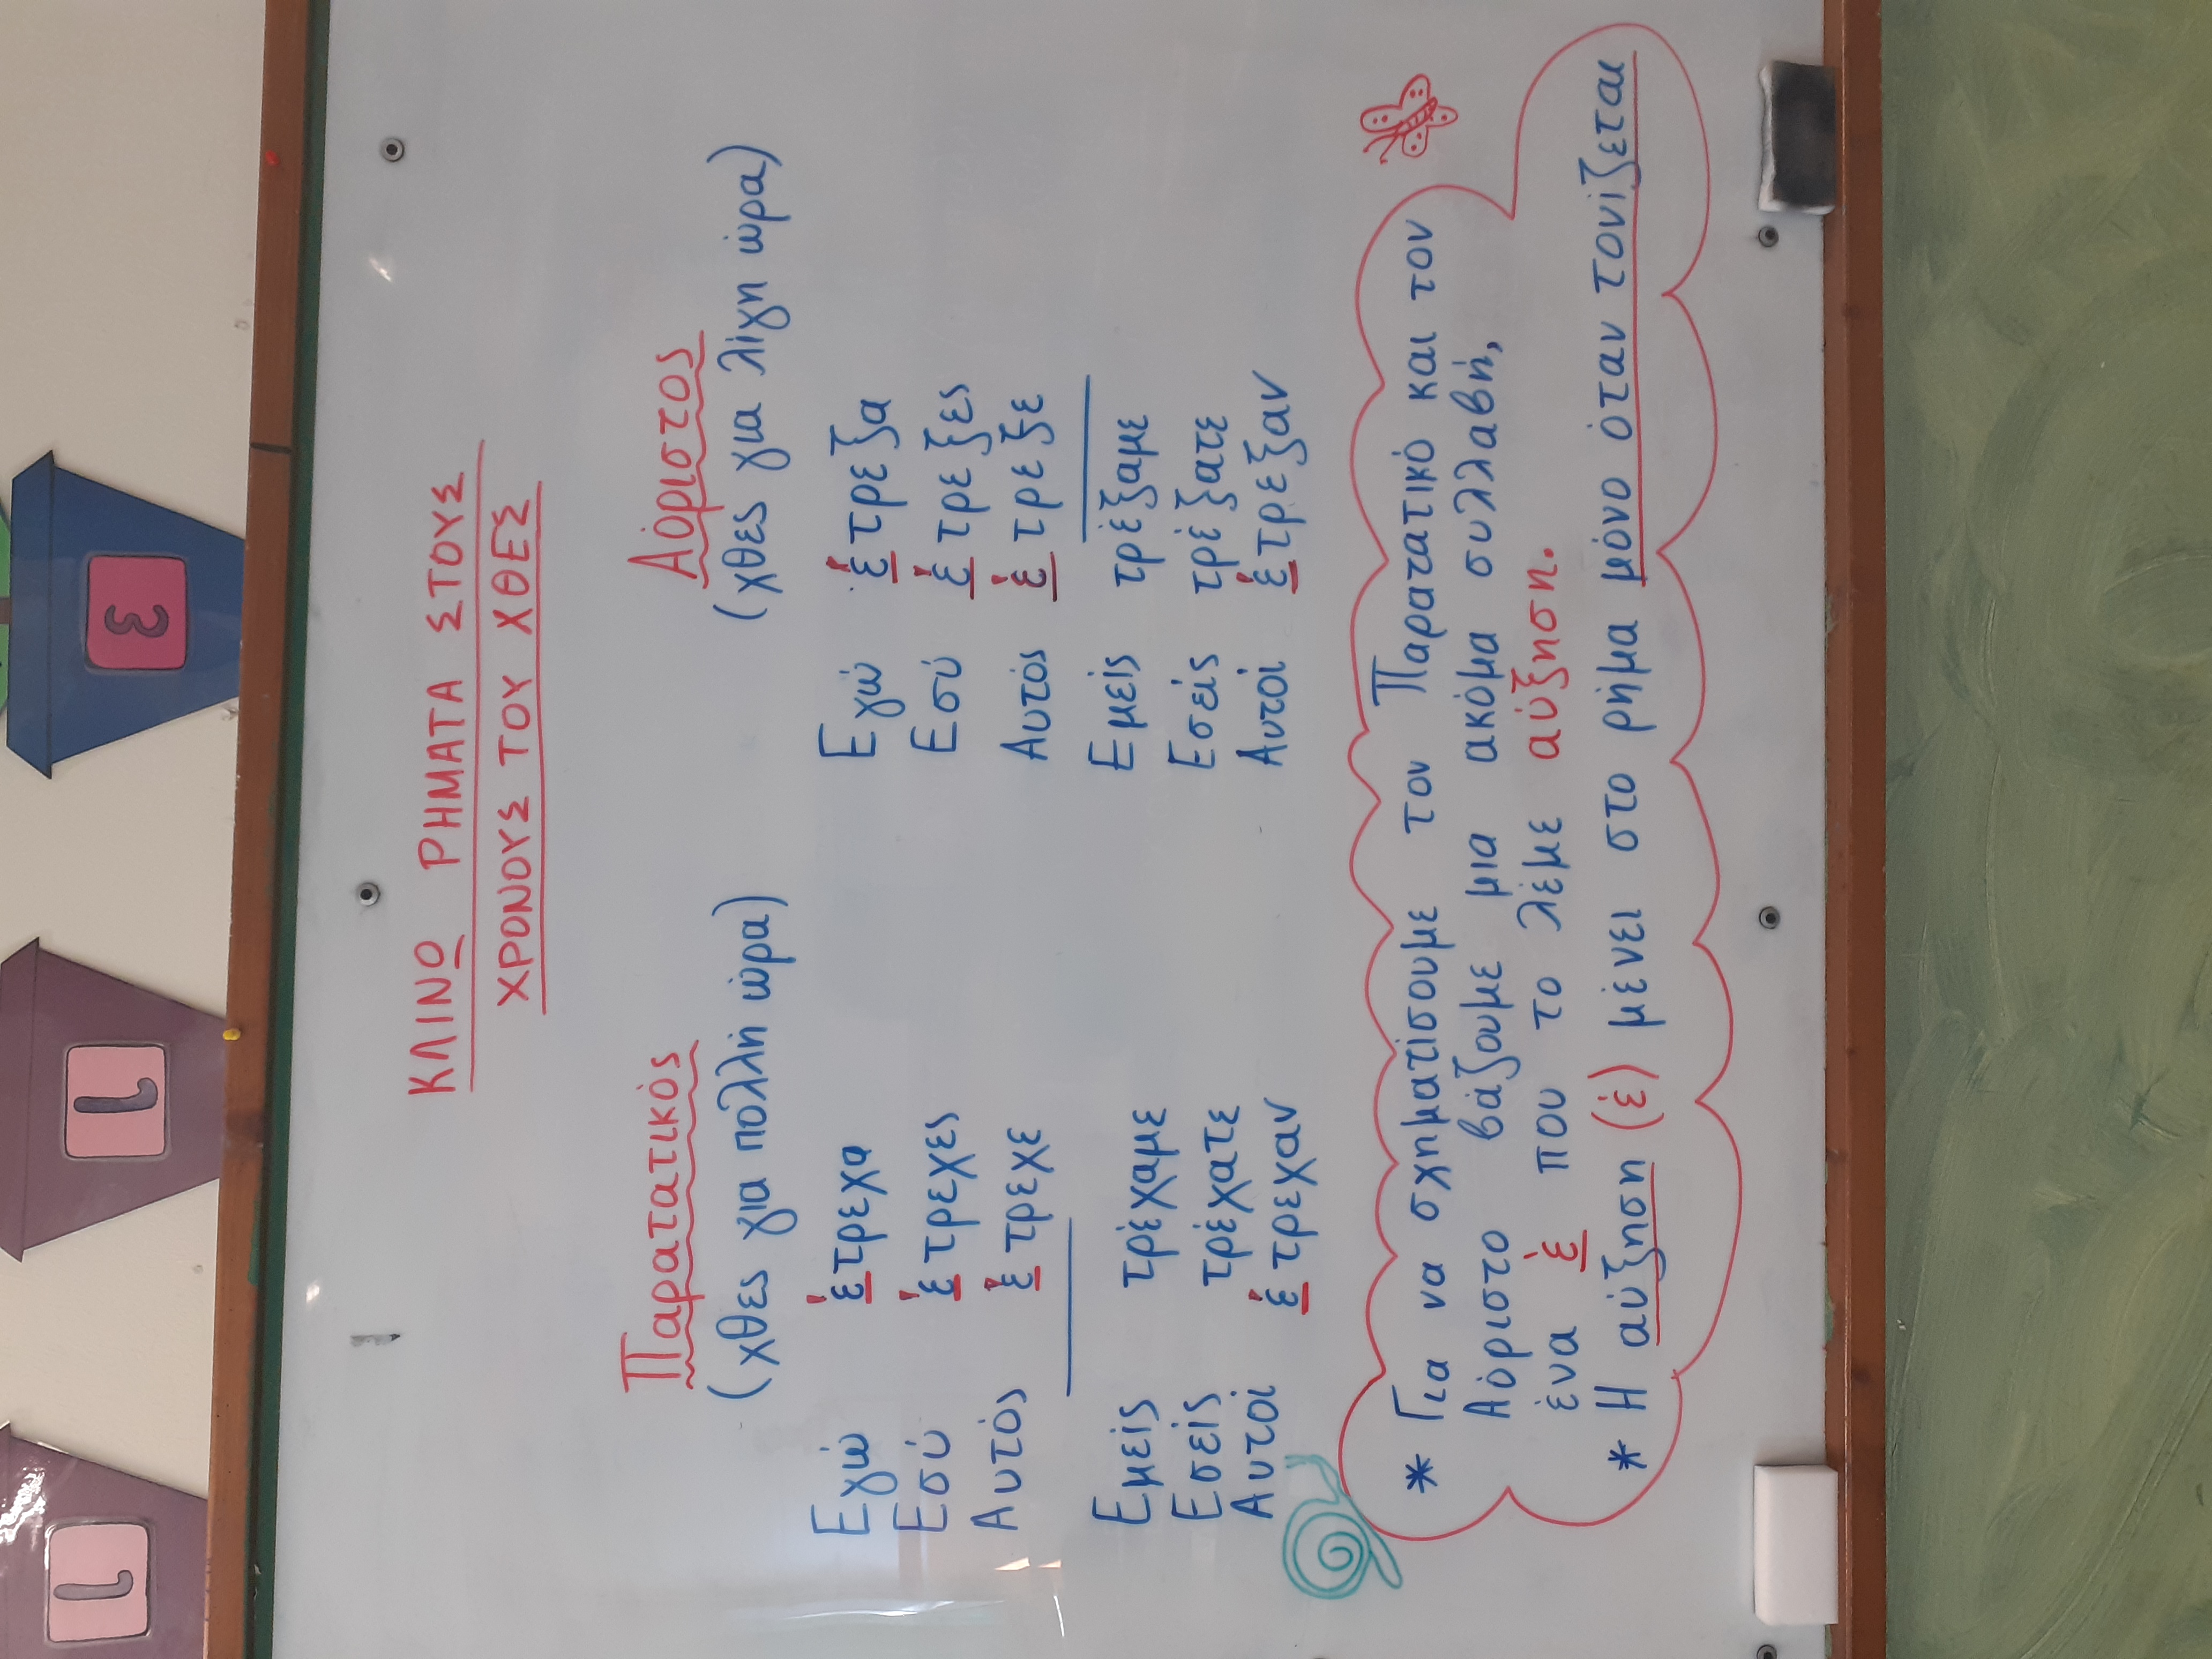 3
1
1
ΚΛΙΝΟ ΡΗΜΑΤΑ ΣΤΟΥΣ
ΧΡΟΝΟΥΣ ΤΟΥ ΧΘΕΣ
Παρατατικός
(χθες για πολλή ώρα)
Εγώ έτρεχα
Εσύ έτρεχες
Αυτός έτρεχε
Εμείς τρέχαμε
Εσείς τρέχατε
Αυτοί έτρεχαν
Αόριστος
(χθες για λίγη ώρα)
Εγώ έτρεξα
Εσύ έτρεξες
Αυτός έτρεξε
Εμείς τρέξαμε
Εσείς τρέξατε
Αυτοί έτρεξαν
* Για να σχηματίσουμε τον Παρατατικό και τον
Αόριστο βάζουμε μια ακόμα συλλαβή,
ένα έ που το λέμε αύξηση.
* Η αύξηση (έ) μένει στο ρήμα μόνο όταν τονίζεται